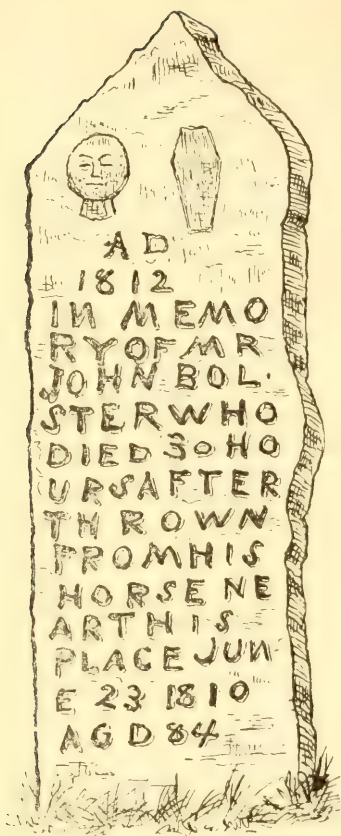 AD
1812
IN MEMO
RYOFMR
JOHN BOL.
STERWHO
DIED 30HO
URSAFTER
THROWN
FROMHIS
HORSE NE
ARTHIS
PLACE JUN
E 23 1810
AGD84